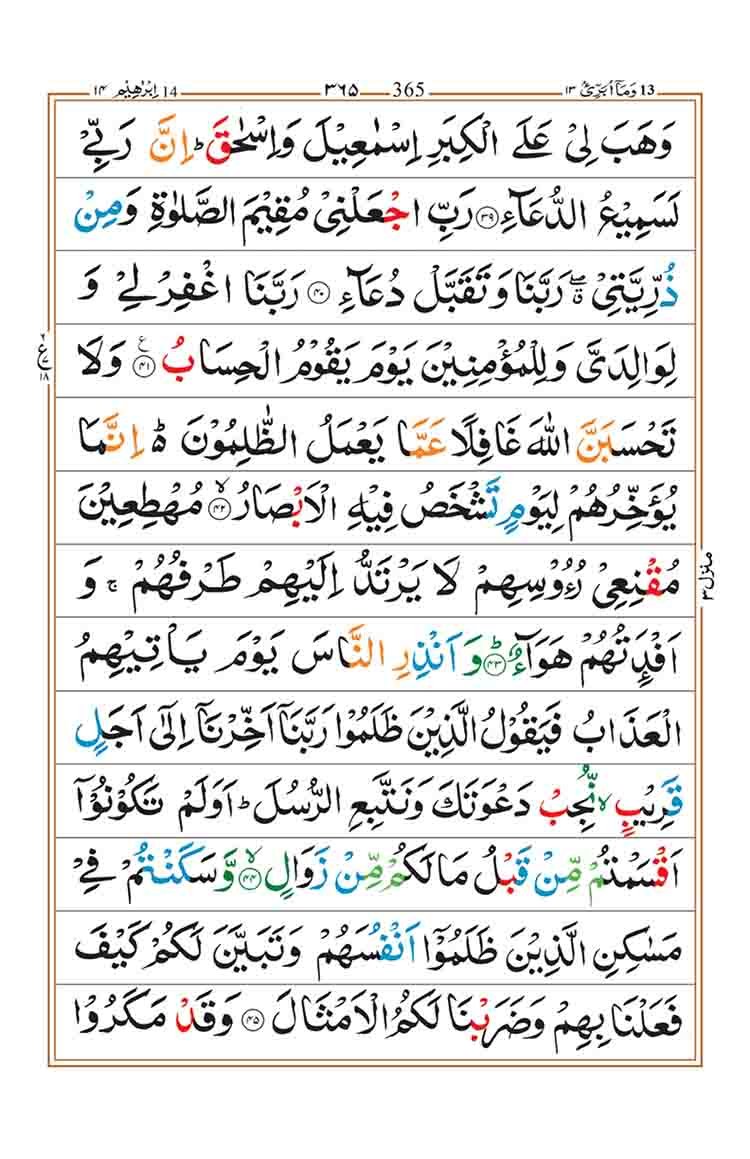 ١٤ اِبْرٰهِيْم 14 ٣٦٥ 365 وَمَاۤ اُبَرِّئُ ١٣ 13
وَهَبَ لِىْ عَلَى الْكِبَرِ اِسْمٰعِيْلَ وَاِسْحٰقَ ؕ اِنَّ رَبِّىْ
لَسَمِيْعُ الدُّعَآءِ ۝٣٩ رَبِّ اجْعَلْنِىْ مُقِيْمَ الصَّلٰوةِ وَمِنْ
ذُرِّيَّتِىْ ۖ ق رَبَّنَا وَتَقَبَّلْ دُعَآءِ ۝٤٠ رَبَّنَا اغْفِرْ لِىْ وَ
لِوَالِدَىَّ وَلِلْمُؤْمِنِيْنَ يَوْمَ يَقُوْمُ الْحِسَابُ ۝٤١ ع وَلَا
ع ١٨
تَحْسَبَنَّ اللّٰهَ غَافِلًا عَمَّا يَعْمَلُ الظّٰلِمُوْنَ ؕ۬ اِنَّمَا
يُؤَخِّرُهُمْ لِيَوْمٍ تَشْخَصُ فِيْهِ الْاَبْصَارُ ۝٤٢ ۙ مُهْطِعِيْنَ
مُقْنِعِىْ رُءُوْسِهِمْ لَا يَرْتَدُّ اِلَيْهِمْ طَرْفُهُمْ ۚ وَ
منزل ٣
اَفْـِٕدَتُهُمْ هَوَآءٌ ۝٤٣ ؕ وَاَنْذِرِ النَّاسَ يَوْمَ يَاْتِيْهِمُ
الْعَذَابُ فَيَقُوْلُ الَّذِيْنَ ظَلَمُوْا رَبَّنَاۤ اَخِّرْنَاۤ اِلٰٓى اَجَلٍ
قَرِيْبٍ ۙ نُّجِبْ دَعْوَتَكَ وَنَتَّبِعِ الرُّسُلَ ؕ اَوَلَمْ تَكُوْنُوْۤا
اَقْسَمْتُمْ مِّنْ قَبْلُ مَا لَكُمْ مِّنْ زَوَالٍ ۝٤٤ ۙ وَّسَكَنْتُمْ فِىْ
مَسٰكِنِ الَّذِيْنَ ظَلَمُوْۤا اَنْفُسَهُمْ وَتَبَيَّنَ لَكُمْ كَيْفَ
فَعَلْنَا بِهِمْ وَضَرَبْنَا لَكُمُ الْاَمْثَالَ ۝٤٥ وَقَدْ مَكَرُوْا